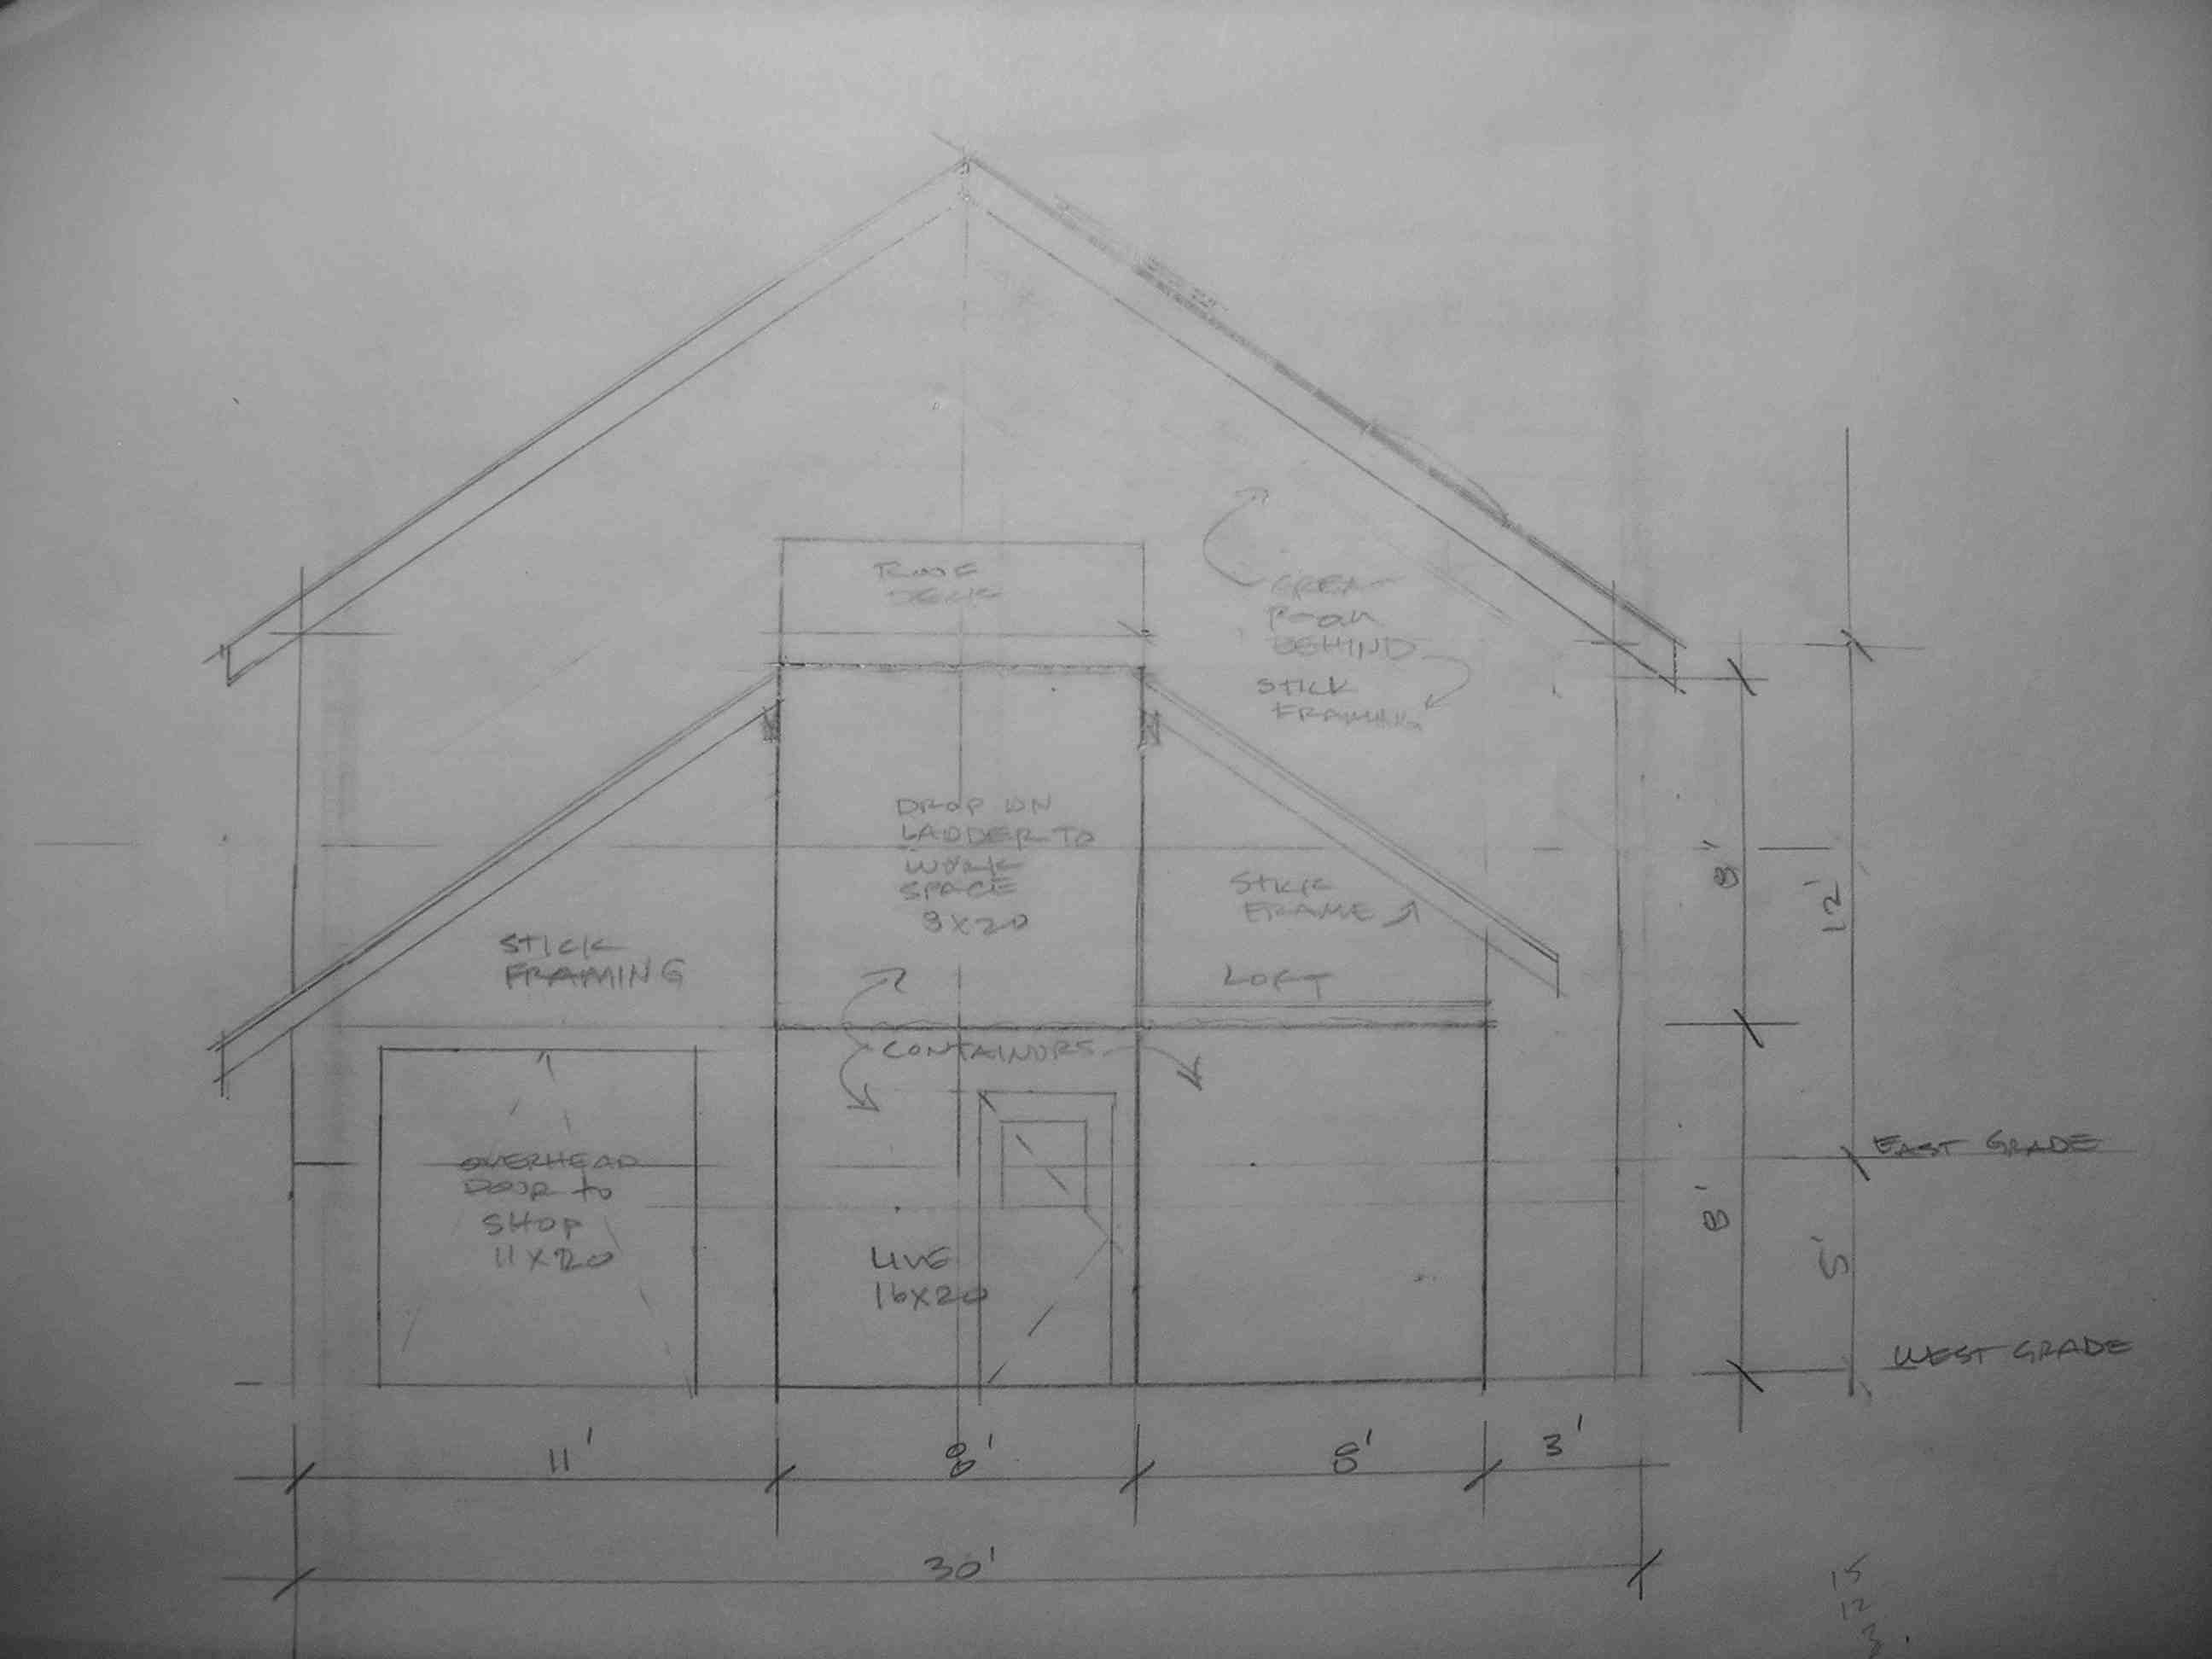 ROOF
DECK
GREAT
ROOM
BEHIND
STICK
FRAMING
DROP DN
LADDER TO
WORK
SPACE
8X20
STICK
FRAME
8'
12'
STICK
FRAMING
LOFT
CONTAINORS
EAST GRADE
OVERHEAD
DOOR to
SHOP
11X20
8'
5'
LIVE
16X20
WEST GRADE
11'
8'
8'
3'
30'
15
12
3.